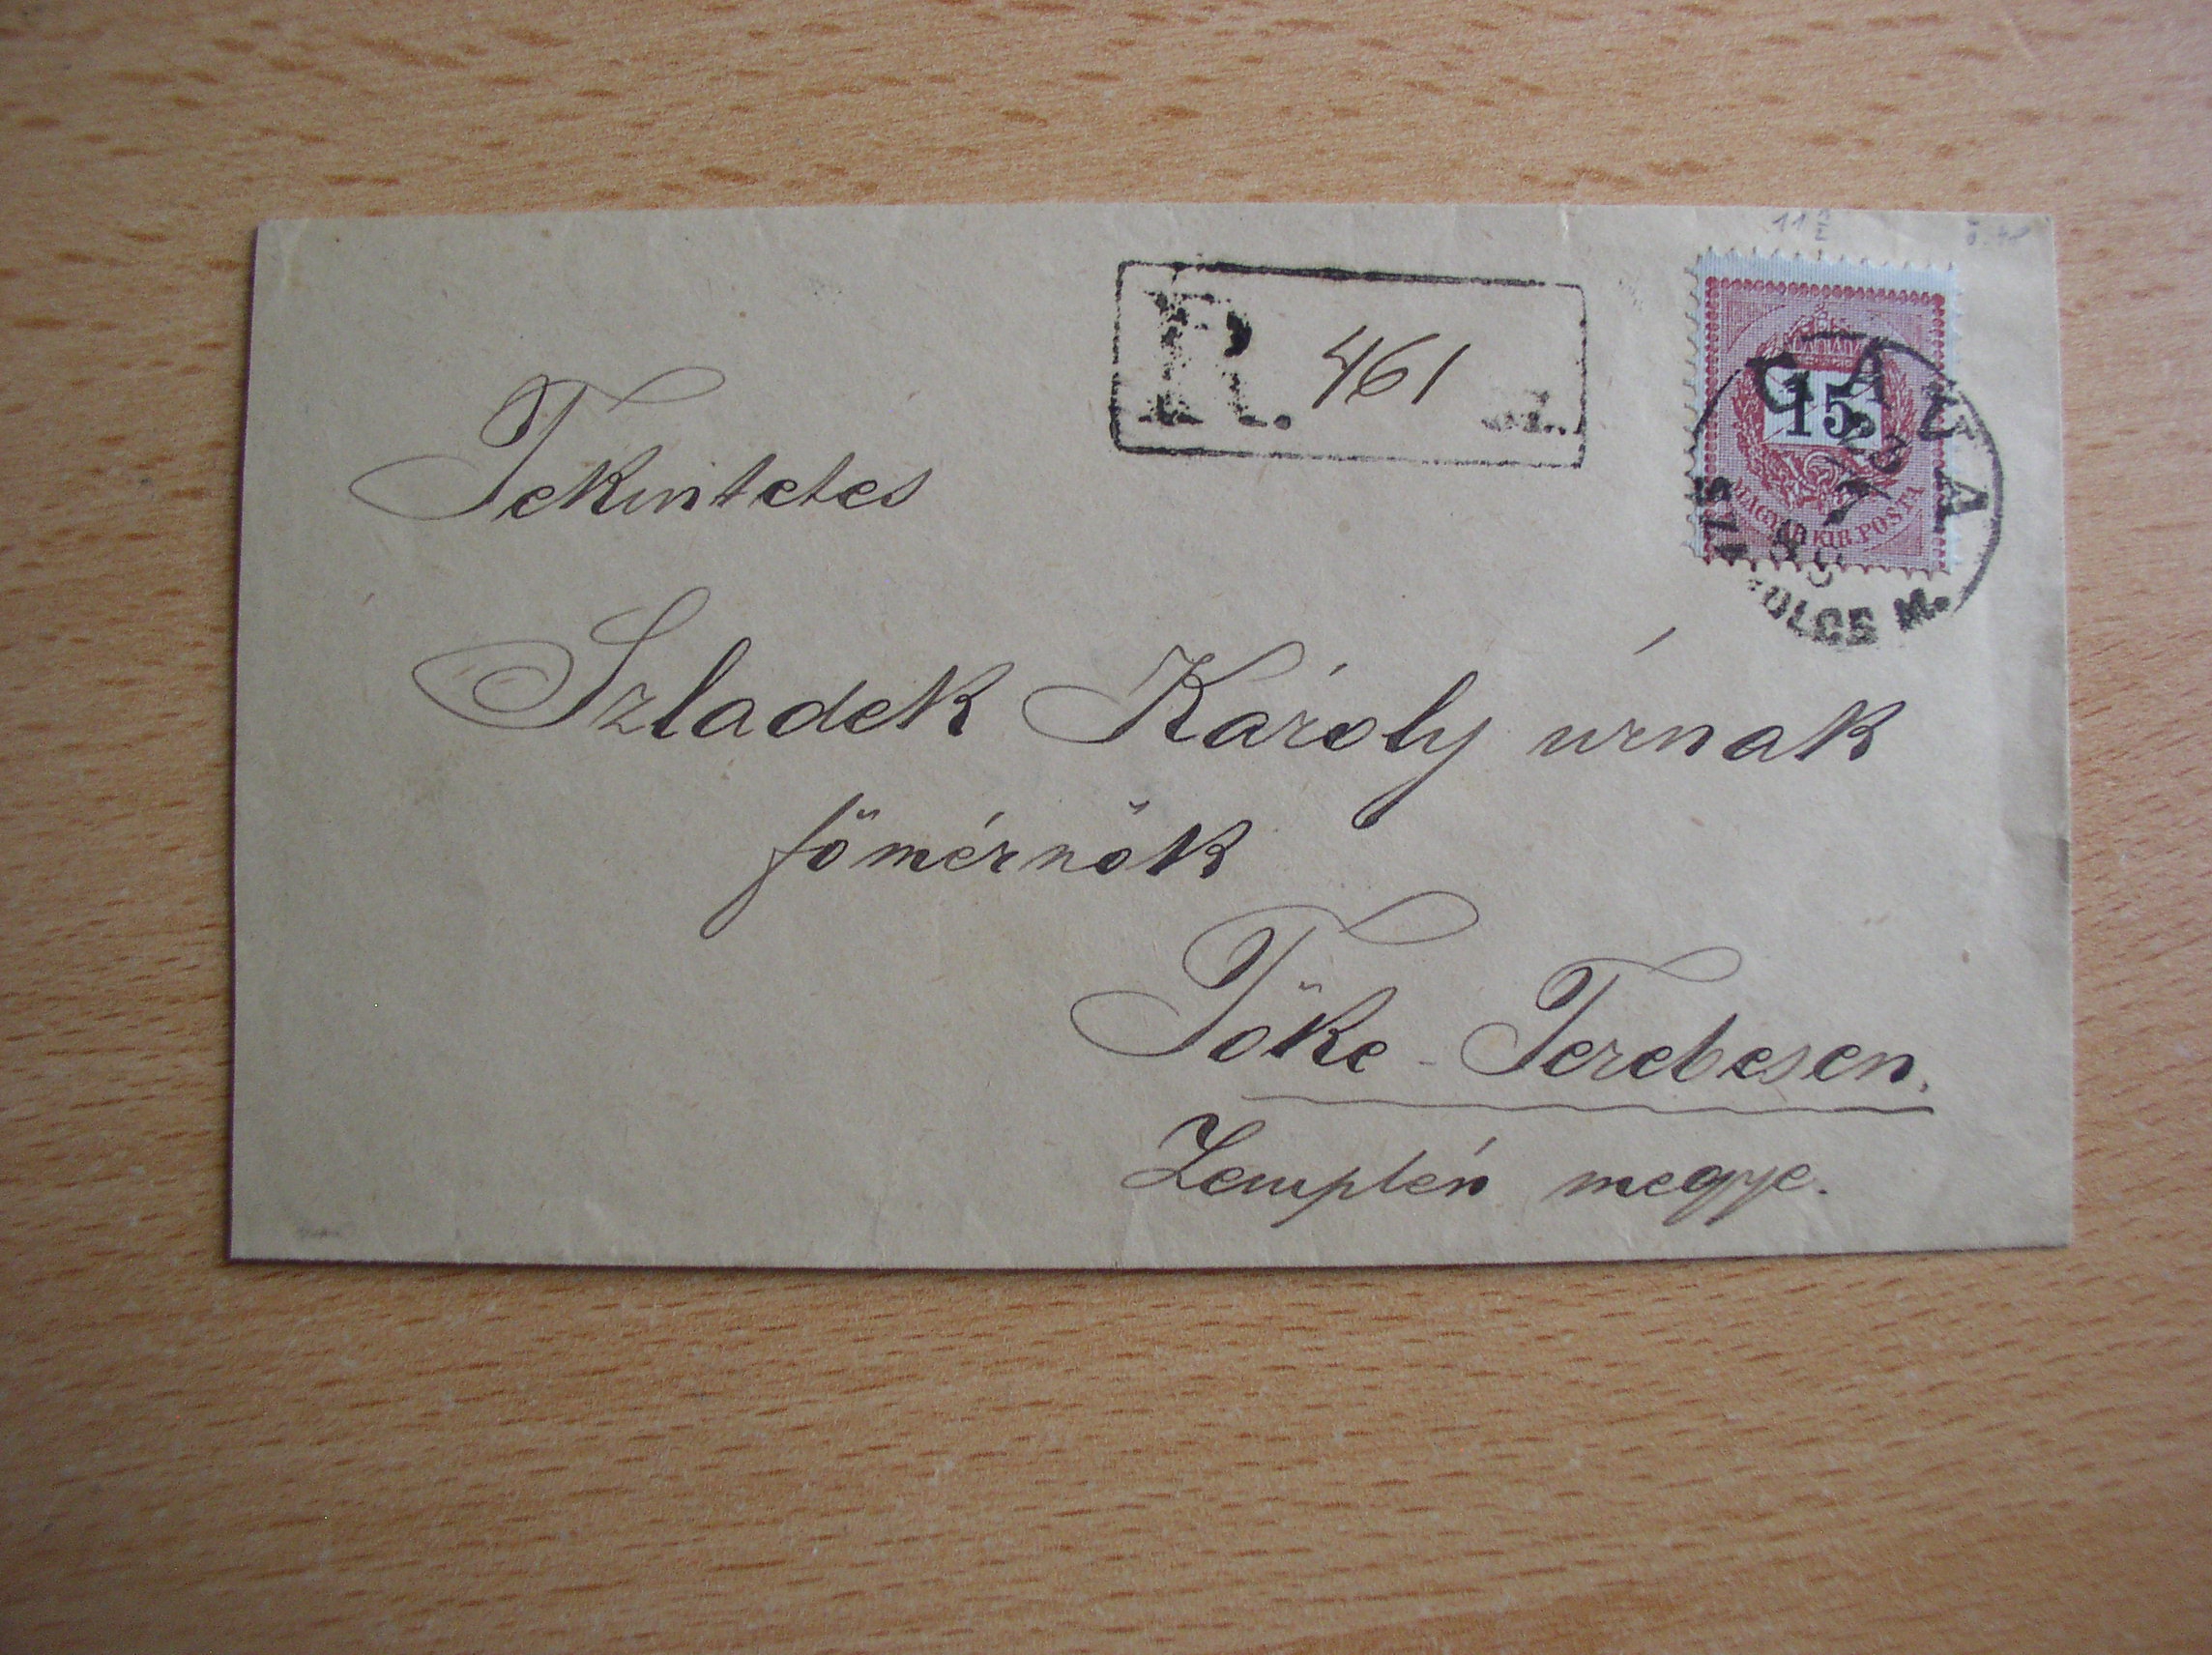 R. 461
15
MAGYAR KIR. POSTA
GAVA
Tekintetes
Szladek Károly úrnak
főmérnök
Tőke-Terebesen.
Zemplén megye.